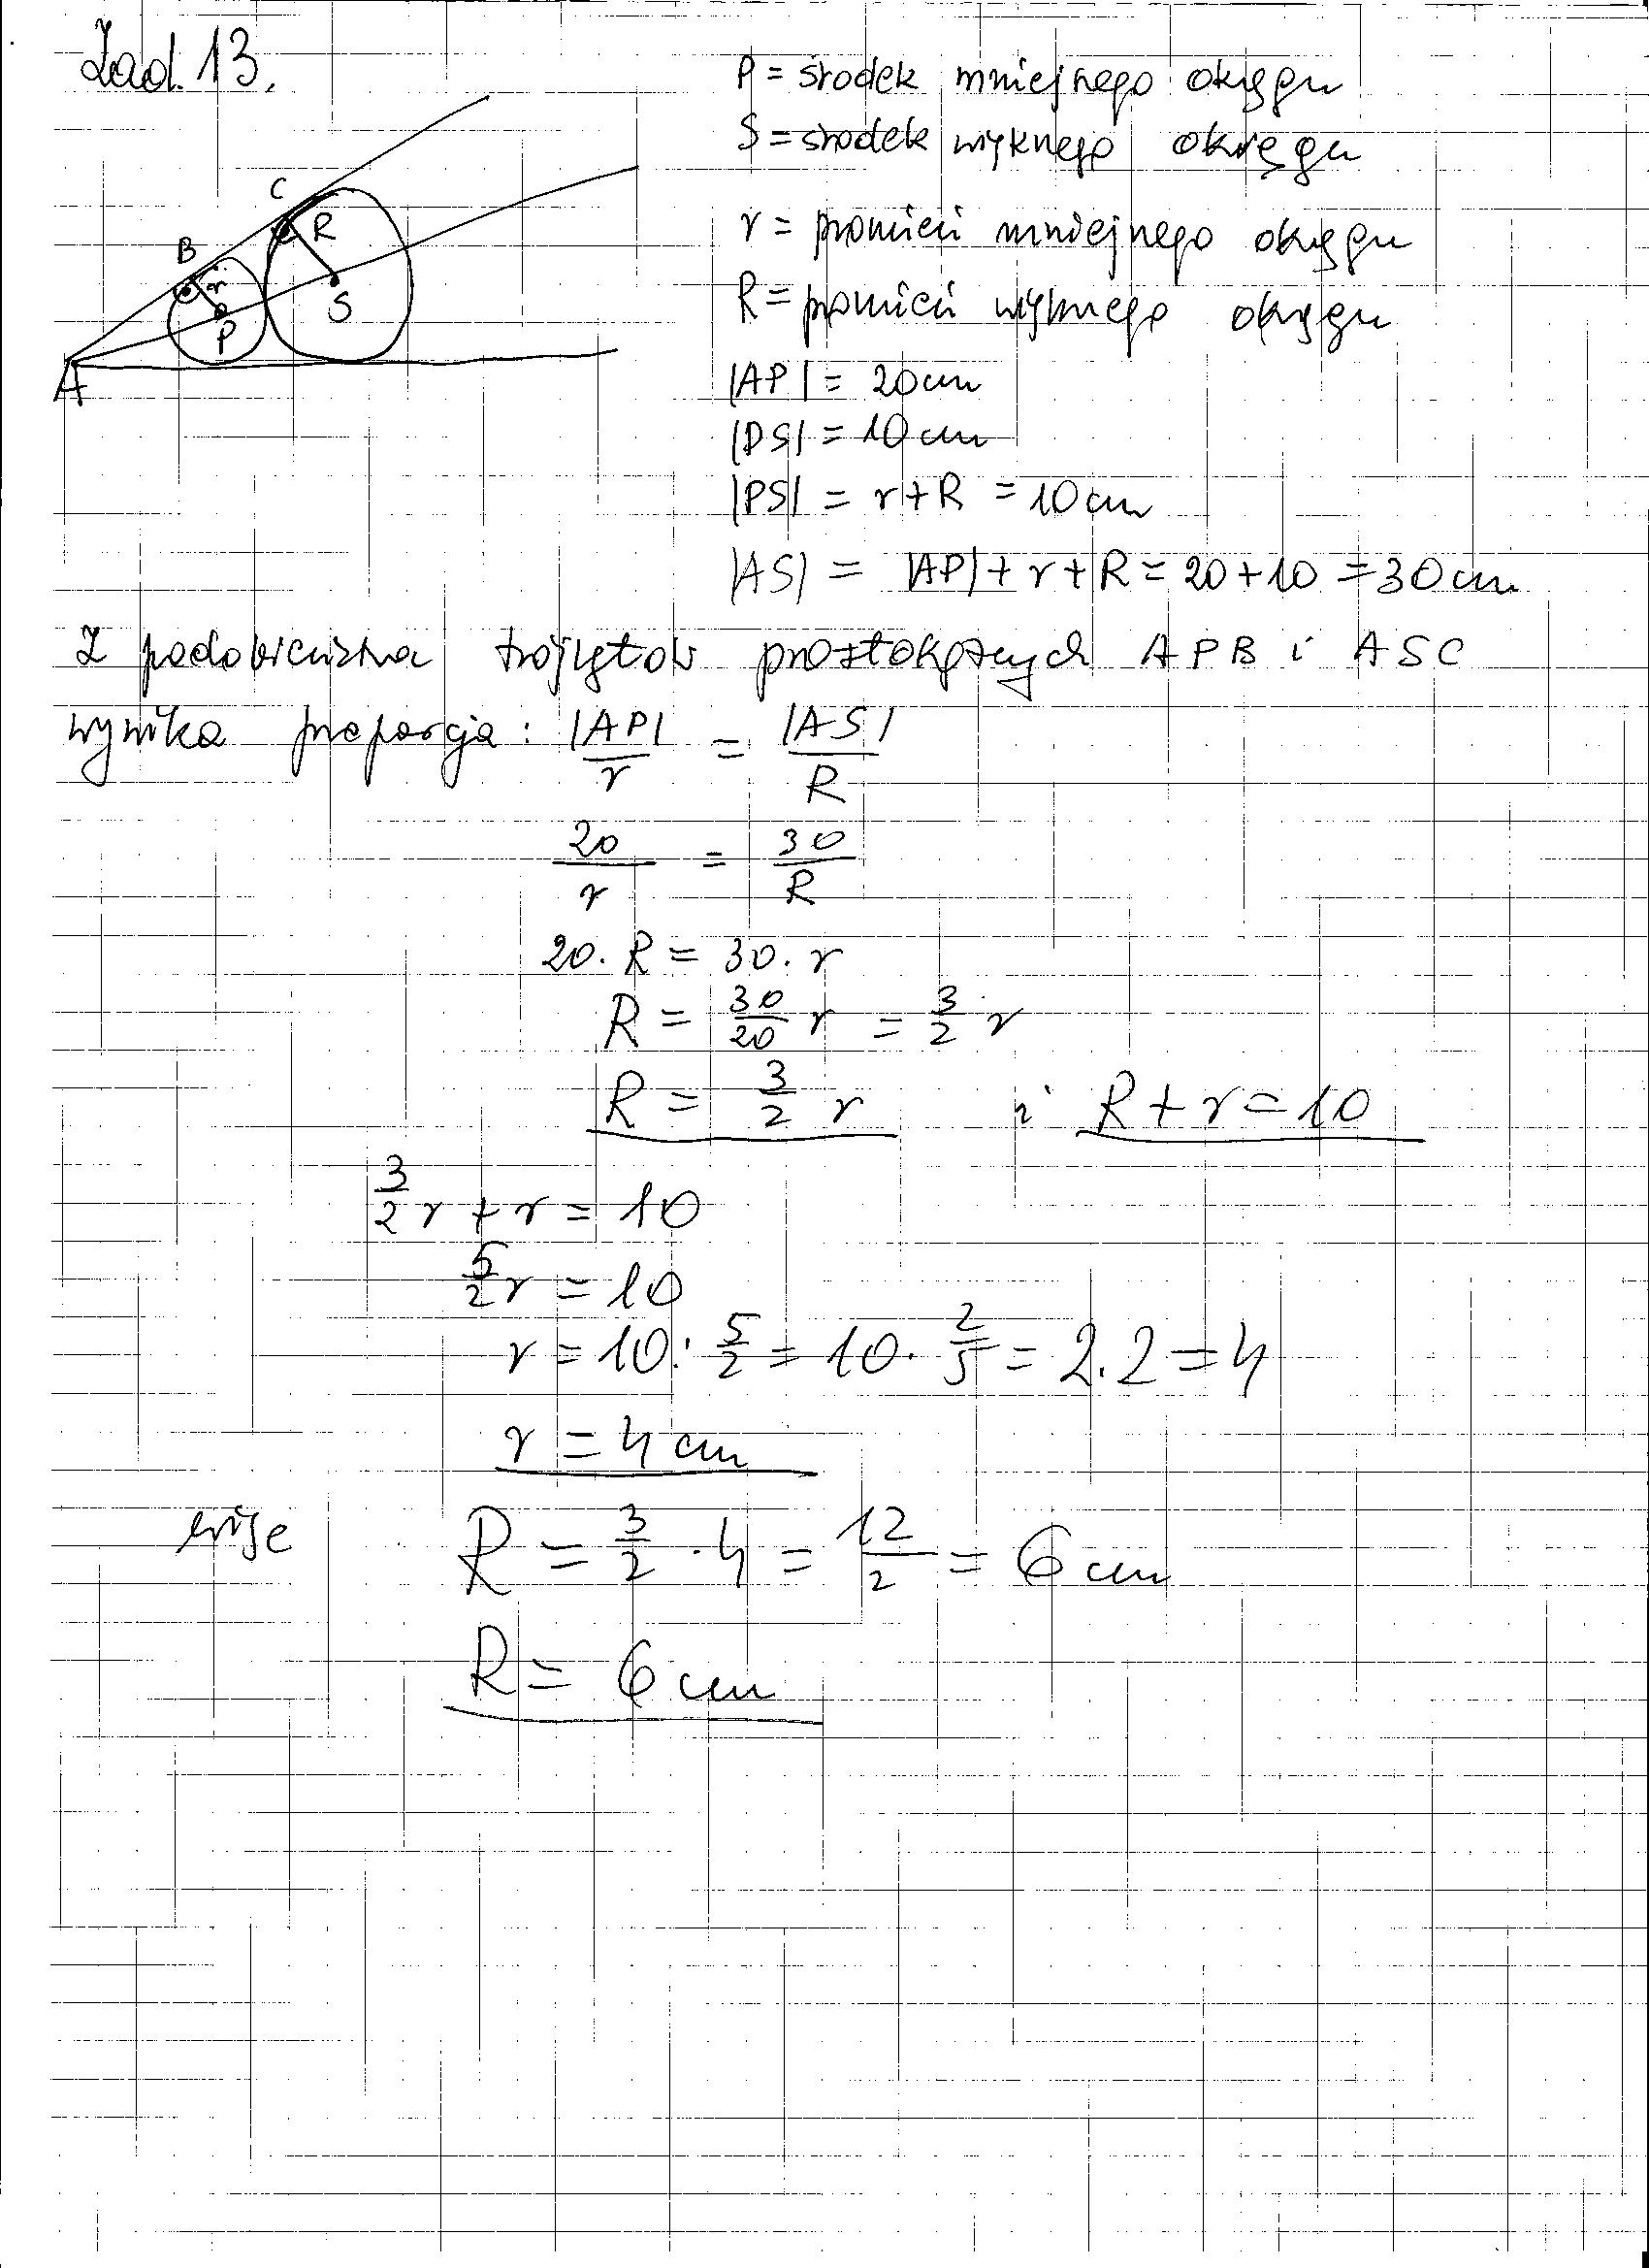 Zad. 13.
P = środek mniejszego okręgu
S = środek większego okręgu
r = promień mniejszego okręgu
R = promień większego okręgu
C
R
B
r
S
P
A
|AP| = 20 cm
|PS| = 10 cm
|PS| = r + R = 10 cm
|AS| = |AP| + r + R = 20 + 10 = 30 cm
Z podobieństwa trójkątów prostokątnych APB i ASC
wynika proporcja: |AP|/r = |AS|/R
20/r = 30/R
20 · R = 30 · r
R = 30/20 r = 3/2 r
R = 3/2 r i R + r = 10
3/2 r + r = 10
5/2 r = 10
r = 10 : 5/2 = 10 · 2/5 = 2 · 2 = 4
r = 4 cm
więc R = 3/2 · 4 = 12/2 = 6 cm
R = 6 cm